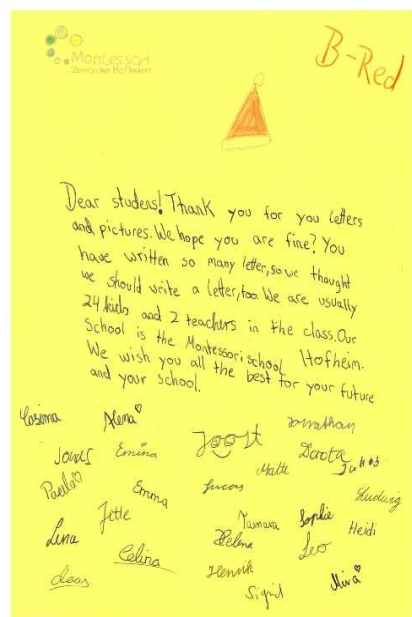 Montessori
Zentrum Hofheim
B-Red
Dear studens! Thank you for you letters
and pictures. We hope you are fine? You
have written so many letter, so we thought
we should write a letter, too. We are usually
24 kids and 2 teachers in the class. Our
School is the Montessori school Hofheim.
We wish you all the best for your future
and your school.
Cosima Alena Jonathan
Jonas Emina Joost Dorota Jakob
Paula Emma Lucas Matti Ludwig
Jette Tamara Sophie Heidi
Lina Helena Leo
Celina Henrik Mira
Sigrid